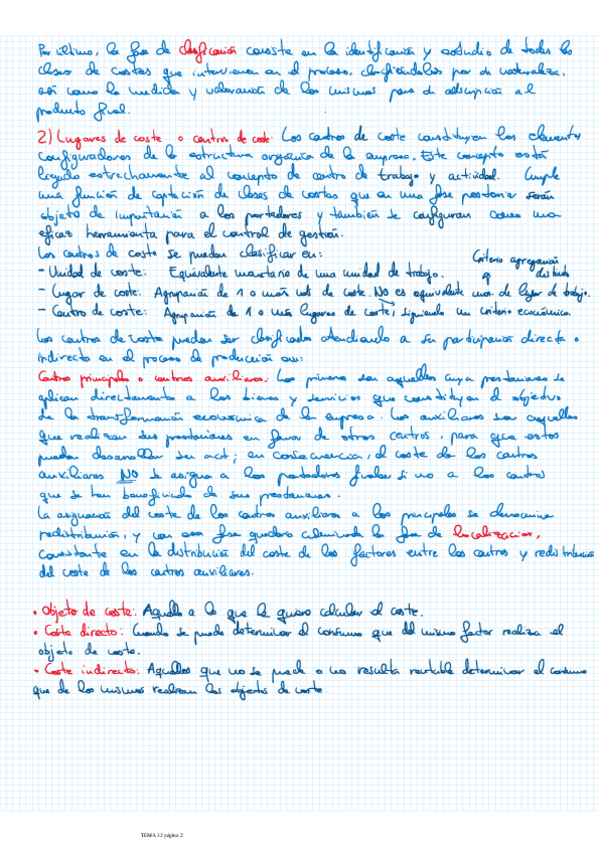 Por último, la fase de clasificación consiste en la identificación y estudio de todas las
clases de costes que intervienen en el proceso, clasificándolos por su naturaleza,
así como la medida y valoración de los mismos para su adscripción al
producto final.
2) Lugares de coste o centros de coste. Los centros de coste constituyen los elementos
configuradores de la estructura orgánica de la empresa. Este concepto está
ligado estrechamente al concepto de centro de trabajo y actividad. Cumple
una función de captación de clases de costes que en una fase posterior serán
objeto de imputación a los portadores y también se configuran como una
eficaz herramienta para el control de gestión.
Los centros de coste se pueden clasificar en:
- Unidad de coste: Equivalente monetario de una unidad de trabajo.
Criterio agregación
distinto
- Lugar de coste: Agrupación de 1 o más uds de coste. NO es equivalente mon. de lugar de trabajo.
- Centro de coste: Agrupación de 1 o más lugares de coste, siguiendo un criterio económico.
Los centros de coste pueden ser clasificados atendiendo a su participación directa o
indirecta en el proceso de producción en:
Centros principales o centros auxiliares. Los primeros son aquellos cuyas prestaciones se
aplican directamente a los bienes y servicios que constituyen el objetivo
de la transformación económica de la empresa. Los auxiliares son aquellos
que realizan sus prestaciones en favor de otros centros, para que estos
puedan desarrollar su act; en consecuencia, el coste de los centros
auxiliares NO se asigna a los portadores finales si no a los centros
que se han beneficiado de sus prestaciones.
La asignación del coste de los centros auxiliares a los principales se denomina
redistribución, y con esa fase quedará culminada la fase de localización,
consistente en la distribución del coste de los factores entre los centros y redistribución
del coste de los centros auxiliares.
• Objeto de coste: Aquello a lo que le quiero calcular el coste.
• Coste directo: Cuando se puede determinar el consumo que del mismo factor realiza el
objeto de coste.
• Coste indirecto: Aquellos que no se puede o no resulta rentable determinar el consumo
que de los mismos realizan los objetos de coste
TEMA 12 página 2